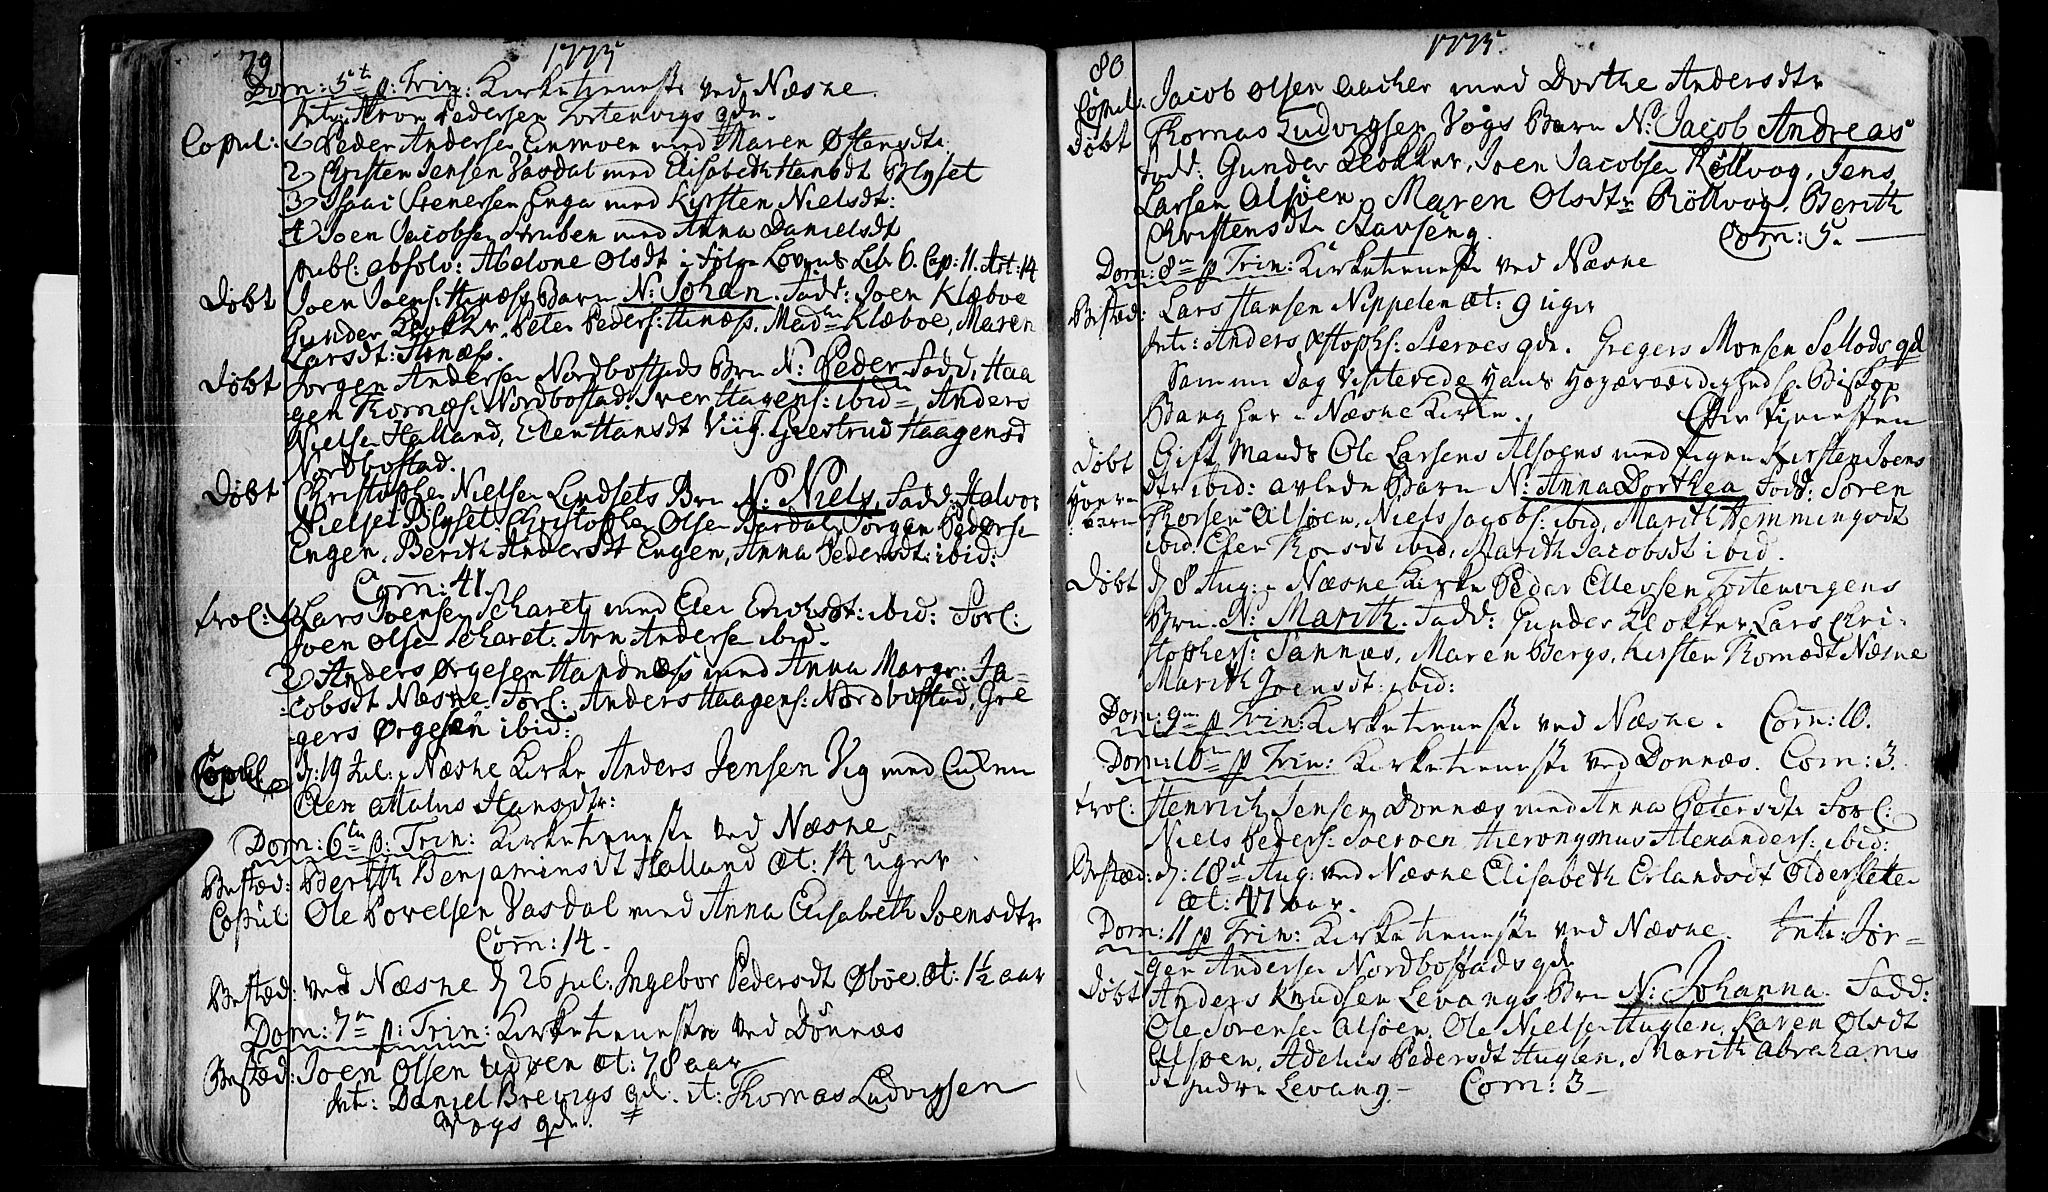 79
1775
Dom: 5te p: Trin: Kirketieneste ved Næsne.
Int: Aron Pedersen Tortenvigs qde.
Copul: 1 Peder Andersen Einmoen med Maren Østensdtr
2 Christen Jensen Vasdal med Elisabeth Hansdt Blyset
3 Isaac Stenersen Enga med Kirsten Nielsdt:
4 Joen Jacobsen Struben med Anna Danielsdt
publ: absolv: Abelone Olsdt i følge Lovens Lib 6. Cap: 11. Art: 14
Døbt Joen Joens: Hinæss Barn N: Johan. Fadd: Joen Klæboe
Gunder Klokker, Peter Peders: Hinæss, Madme Klæboe, Maren
Larsdt: Hinæss.
Døbt Jørgen Andersen Nordbostads Brn N: Peder Fadd: Haa
gen Thomæs: Nordbostad. Iver Hagens: ibidm Anders
Nielsen Halland, Elen Hansdt Viig. Giertrud Haagensd
Nordbostad.
Døbt Christopher Nielsen Lindsets Brn N: Niels, Fadd: Halvor
Nielsen Blyset. Christopher Olsen Bardal, Jørgen Pederse
Engen, Berith Andersdt Engen, Anna Pedersdt: ibid:
Com: 41.
trol: 1 Lars Joensen Scharet med Elen Erichsdt: ibid: Forl:
Joen Olsen Scharet: Arn Andersen ibid.
2 Anders Ørgesen Handnæss med Anna Margr: Ja=
=cobsdt Næsne. Forl: Anders Haagens: Nordbostad, Gre
=gers Ørgesen ibid:
Copul d: 19 Jul: i Næsne Kirke Anders Jensen Vig med Enken
Elen Hansdtr:
Dom: 6te p: Trin: Kirketieneste ved Næsne
Bestæd: Berith Benjaminsdt Halland æt: 14 uger
Copul Ole Povelsen Vasdal med Anna Elisabeth Joensdtr
Com: 14.
Bestæd: ved Næsne d 26 jul. Ingebor Pedersdt Øbøe. æt: 1½ aar
Dom: 7me p: Trin: Kirketieneste ved Dønnæs
Bestæd: Joen Olsen Udøen æt: 78 aar
Int: Daniel Brevigs qd. it: Thomas Ludvigsen
Vogs qde.
80
1775.
Copul: Jacob Olsen Aacher med Dorthe Andersdtr
Døbt Thomas Ludvigsen Vogs Barn N: Jacob Andreas
Fadd: Gunder Klokker, Joen Jacobsen Röllvog, Jens
Larsen Alsøen, Maren Olsdtr Röllvog, Berith
Christensdtr Stavseng. Com: 5.
Dom: 8me p Trin: Kirketieneste ved Næsne
Bestæd: Lars Hansen Nippelen æt: 9 uger
Int: Anders Xstophs: qde. Gregers Monsen qd
Samme Dag Visiterede Hans Høyærværdighed Biskop
Bang her i Næsne Kirke. Efter tienesten
Døbt Gift Mands Ole Larsens Alsøens med pigen Kirsten Joens
Hoere dtr ibid: avlede Barn N: Anna Dorthea Fadd: Søren
barn Thorsen Alsøen, Niels Jacobs: ibid, Marith Hemmingsdt
ibid. Elen Thorsdt ibid, Marith Jacobsdt ibid.
Døbt d 8 Aug: i Næsne Kirke Peder Ellevsen Tortenvigens
Brn. N: Marith. Fadd: Gunder Klokker Lars Chri=
stophers: Sannæs, Maren Bergs, Kirsten Thomædt Næsne
Marith Joensdt: ibid:
Dom: 9me p Trin: Kirketieneste ved Næsne. Com: 10.
Dom: 10me p Trin: Kirketieneste ved Dønnæs. Com: 3.
trol: Henrich Jensen Dønnæs med Anna Petersdtr Forl:
Niels Peders: Hieronymus Alexanders: ibid:
Bestæd: d: 18de Aug: ved Næsne Elisabeth Erlandsdt Oldersletten
æt: 47 aar.
Dom: 11 p Trin: Kirketieneste ved Næsne. Int: Jør=
gen Andersen Nordbostads qde
Døbt Anders Knudsen Levangs Brn N: Johanna. Fadd:
Ole Sørensen Alsøen, Ole Nielsen Huglen, Karen Olsdt
Alsøen, Adelus Pedersdt Huglen, Marith Abrahams
dt indre Levang Com: 3